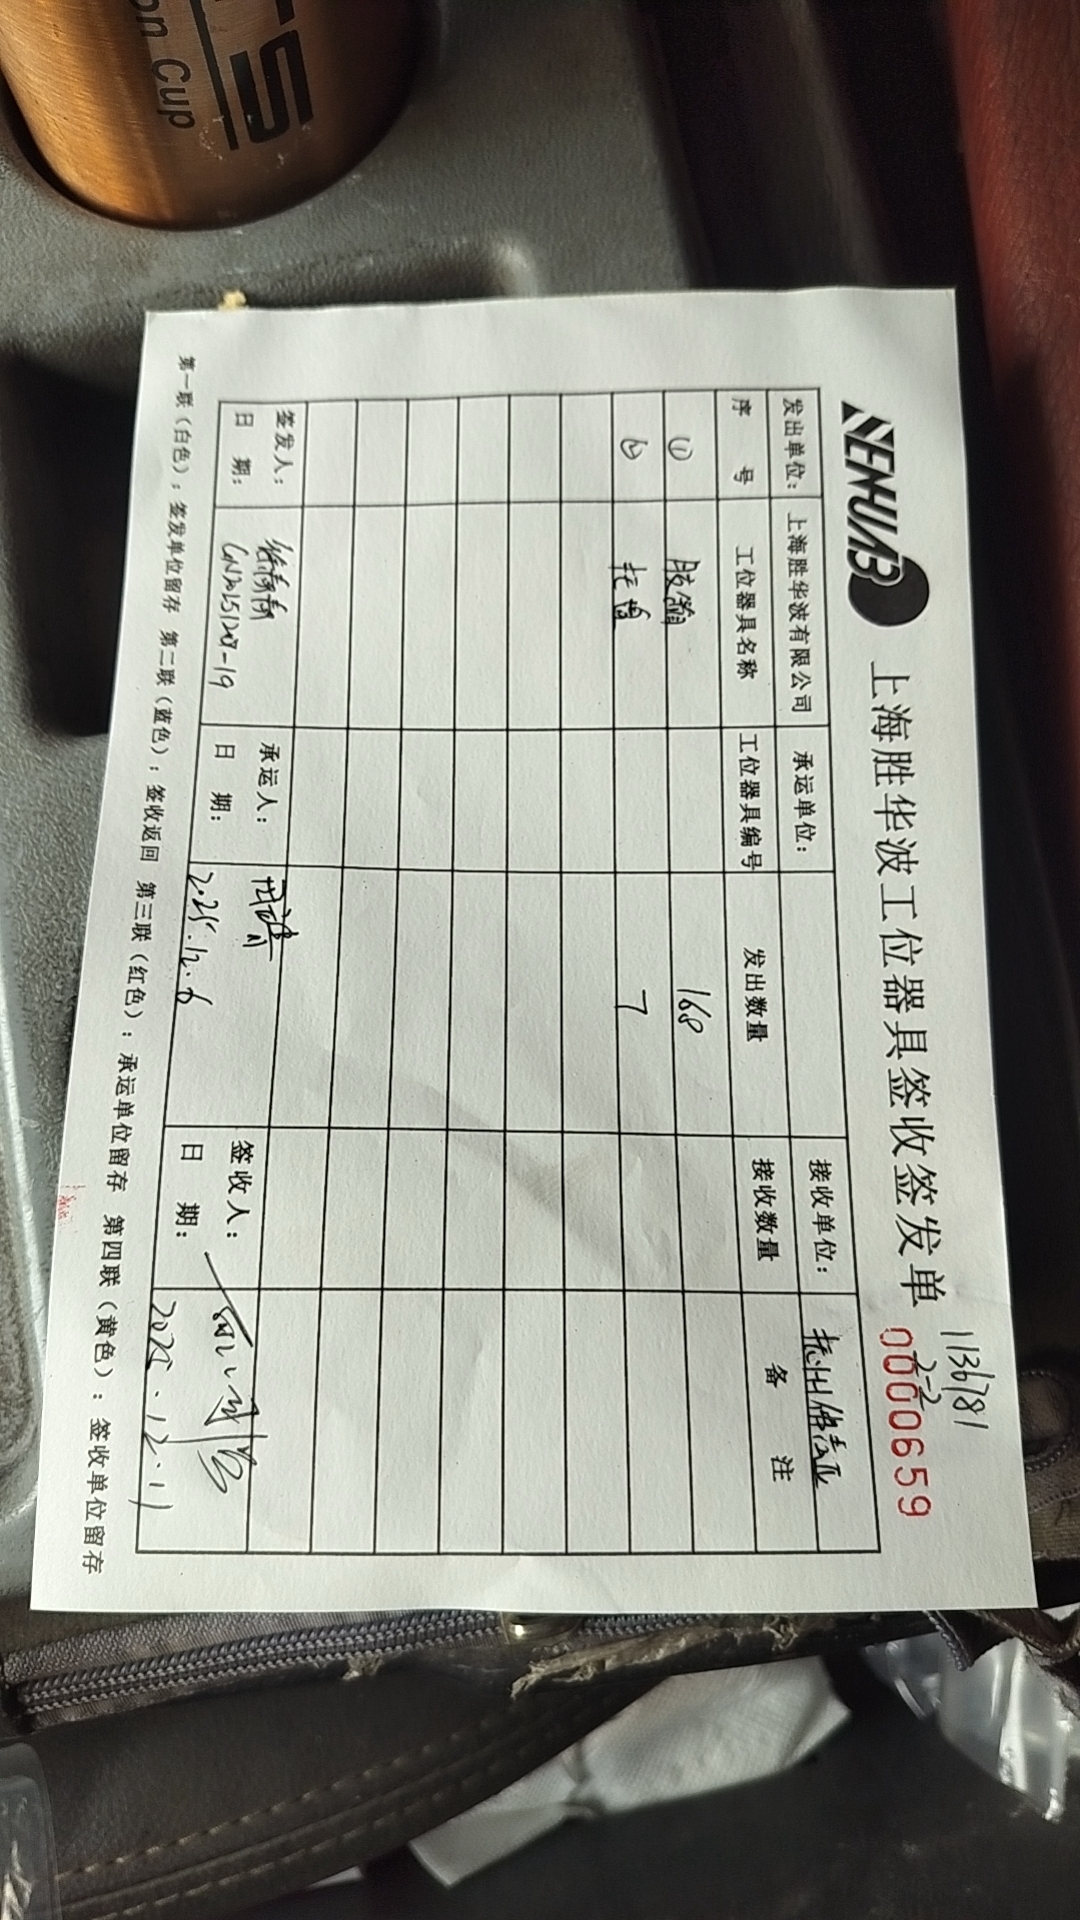 TS
on Cup
SENHUABO
上海胜华波工位器具签收签发单
1136781
2-2
0000659
发出单位： 上海胜华波有限公司 承运单位： 接收单位： 抚州
序号 工位器具名称 工位器具编号 发出数量 接收数量 备注
① 胶箱 168
② 托盘 7
签发人： 承运人： 签收人：
日期： GN20251207-19 日期： 2025.12.6 日期： 2025.12.11
第一联（白色）：签发单位留存 第二联（蓝色）：签收返回 第三联（红色）：承运单位留存 第四联（黄色）：签收单位留存